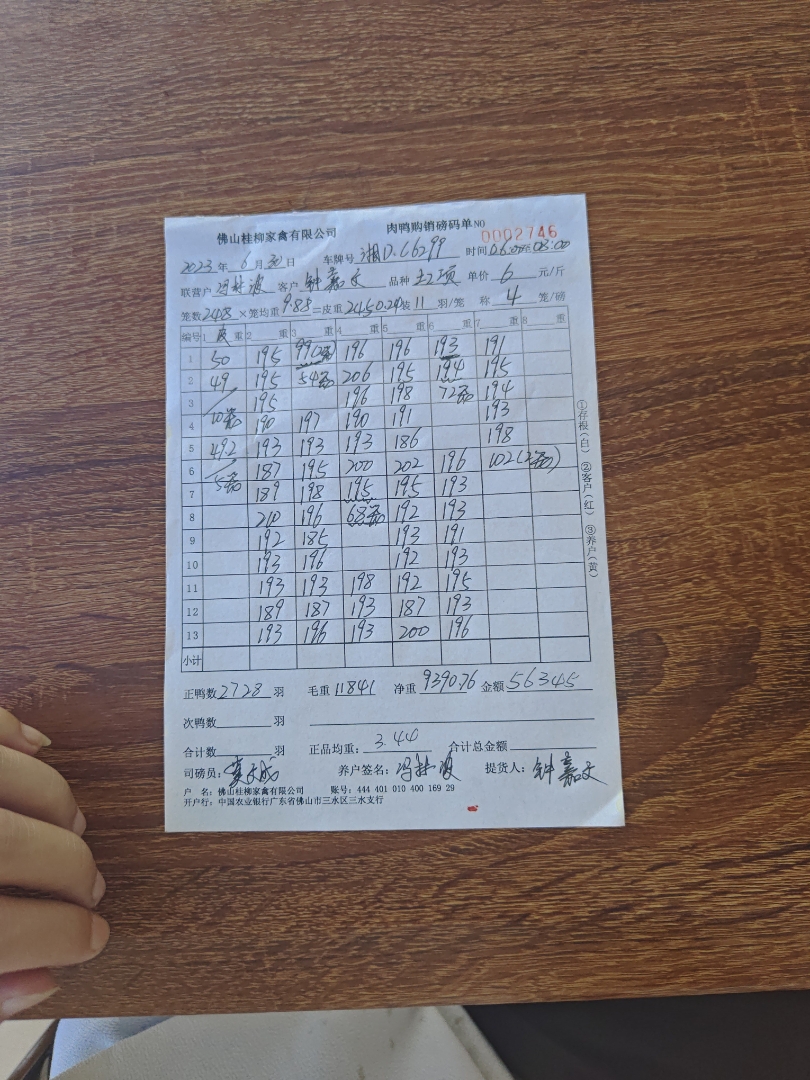 佛山桂柳家禽有限公司 肉鸭购销磅码单 NO 0002746
2023年6月30日 车牌号 湘D.C6299 时间
联营户 客户 钟嘉文 品种 土2项 单价 6 元/斤
笼数 248 ×笼均重 9.88 =皮重 2450.24 装 11 羽/笼 称 4 笼/磅
编号 1 皮重 2 重 3 重 4 重 5 重 6 重 7 重 8 重
1 50 195 99(2笼) 196 196 193 191
2 49 195 54笼 206 195 194 195
3 195 196 198 72笼 194
4 10笼 190 197 190 191 193
5 492 193 193 193 186 198
6 187 195 200 202 196 102(2笼)
7 5笼 189 198 195 195 193
8 210 196 68笼 192 193
9 192 185 193 191
10 193 196 192 193
11 193 193 198 192 195
12 189 187 193 187 193
13 193 196 193 200 196
小计
正鸭数 2728 羽 毛重 11841 净重 9390.76 金额 56345
次鸭数 羽
合计数 羽 正品均重: 3.44 合计总金额
司磅员: 养户签名: 提货人: 钟嘉文
户 名: 佛山桂柳家禽有限公司 账号: 444 401 010 400 169 29
开户行: 中国农业银行广东省佛山市三水区三水支行
①存根(白) ②客户(红) ③养户(黄)